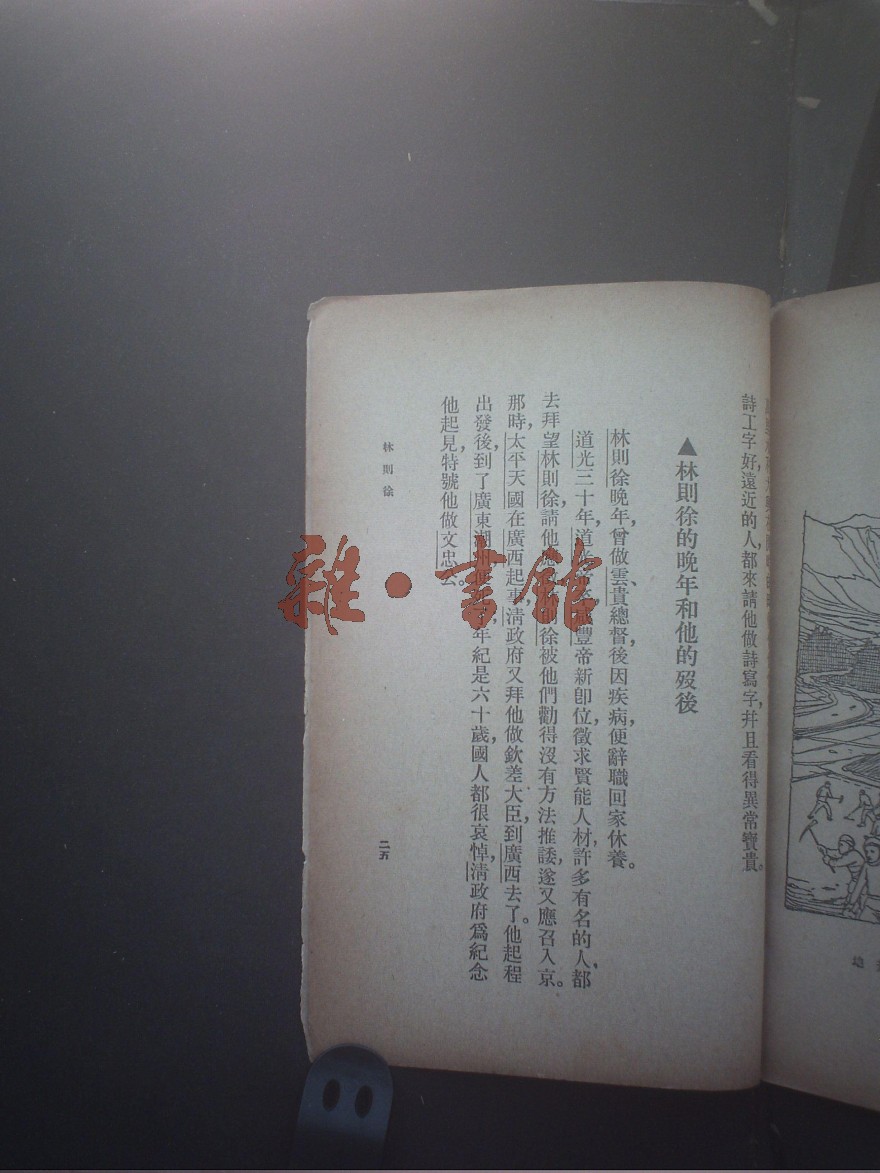 詩工字好，遠近的人，都來請他做詩寫字，幷且看得異常寶貴。
▲林則徐的晚年和他的歿後
林則徐晚年，曾做雲、貴總督，後因疾病，便辭職回家休養。
道光三十年，道光 咸豐帝新卽位，徵求賢能人材，許多有名的人，都
去拜望林則徐，請他 則徐被他們勸得沒有方法推諉，遂又應召入京。
那時，太平天國在廣西起事，淸政府又拜他做欽差大臣，到廣西去了。他起程
出發後，到了廣東潮州 年紀是六十歲，國人都很哀悼，淸政府爲紀念
他起見，特號他做文忠云。
林則徐
二五
雜·書館